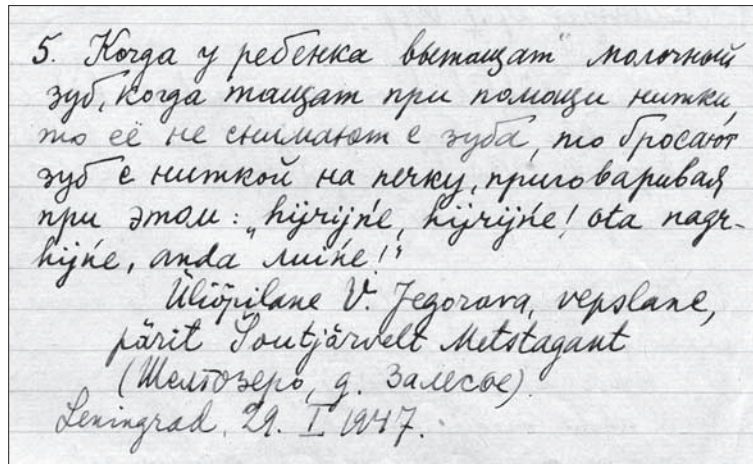 5. Когда у ребенка вытащат молочный
зуб, когда тащат при помощи нитки,
то её не снимают с зуба, то бросают
зуб с ниткой на печку, приговаривая
при этом: „hijrijńe, hijrijńe! ota nagr-
hijńe, anda luińe!"
Üliõpilane V. Jegorova, vepslane,
pärit Šoutjärvelt Metstagant
(Шелтозеро, д. Залесье).
Leningrad, 29. I 1947.